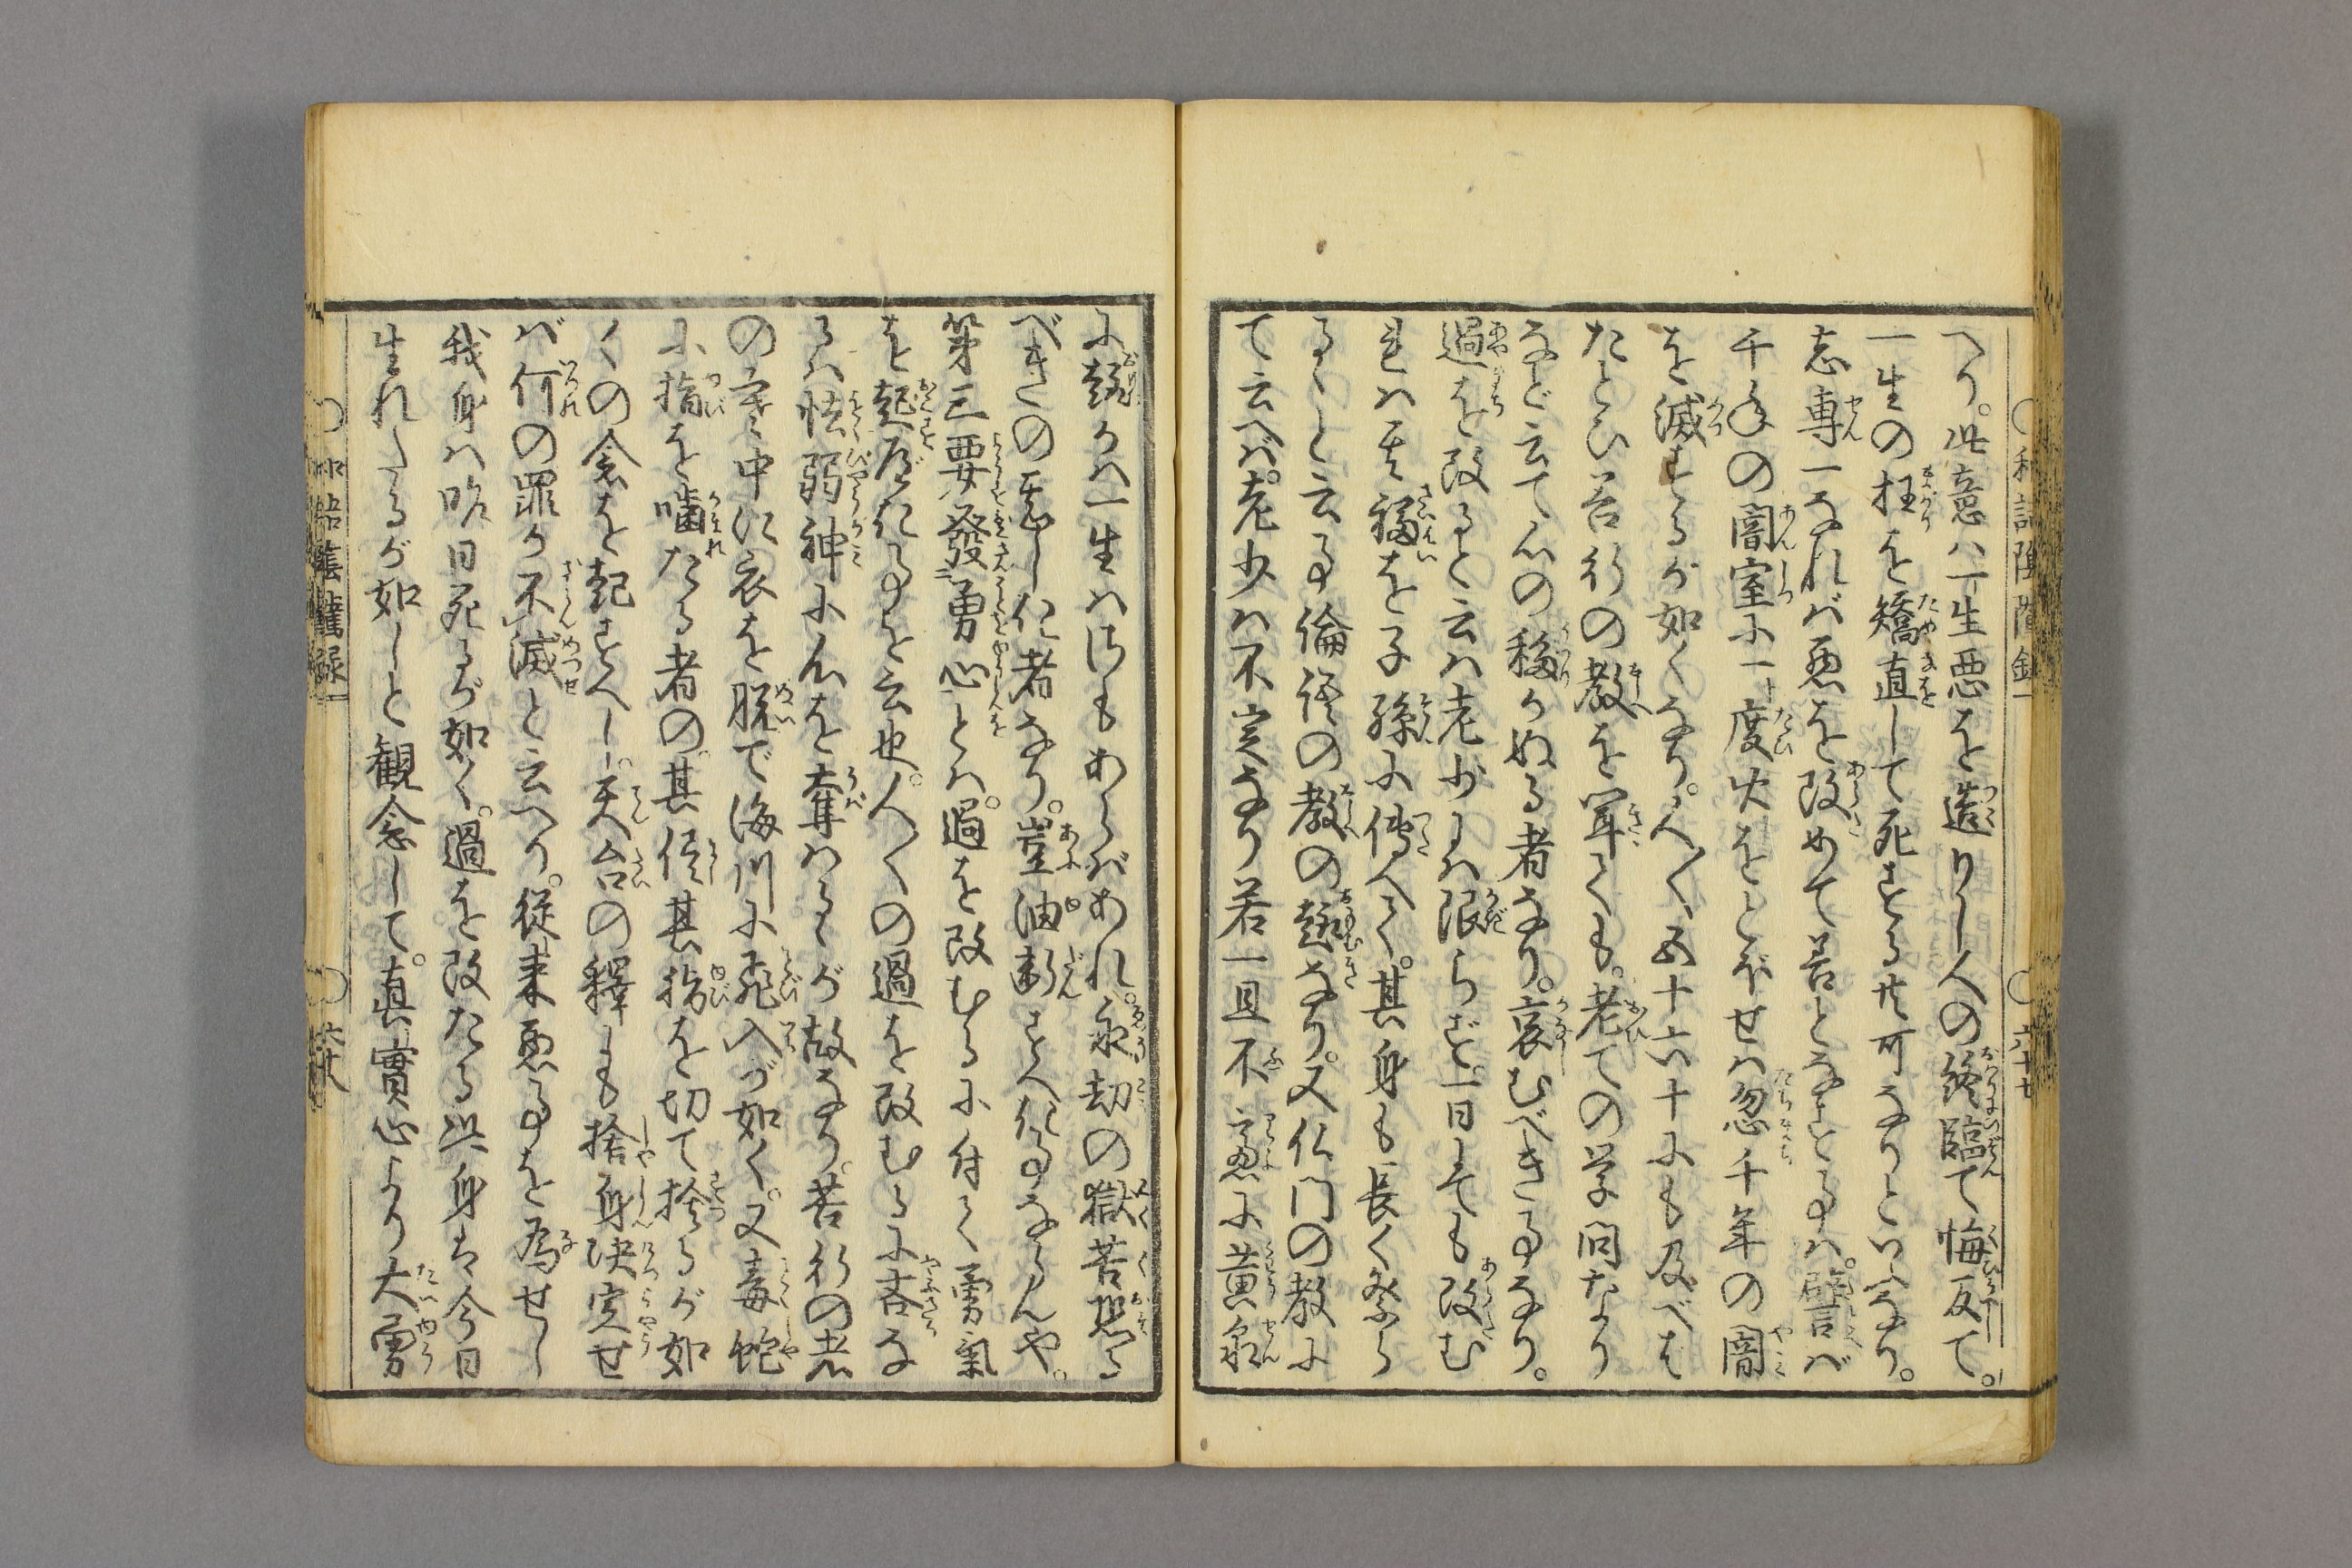 へり。此意ハ一生悪を造りし人の終臨て悔反て。
一生の枉を矯直して死する共可なりといへるなり。
志専一なれバ悪を改めて善となすとる事ハ。譬バ
千年の闇室に一度火をとぼせは忽千年の闇
を滅するが如くなり。人〳〵五十六十にも及べば
たとひ善行の教を聞ても。老ての学問なり
などゝ云て心の移らぬる者なり。哀むべき事なり。
過を改ると云ハ老少にハ限らず。一日にても改む
れハ其福を子孫に傳へて。其身も長く祭ら
るゝと云事倫語の教の趣なり。又仏門の教に
て云へバ。老少ハ不定なり若一旦不意に黄泉
に趣かハ一生ハ何もあらバあれ。永劫の獄苦恐る
べきの悪しき者なり。豈油断すべき事ならんや。
第三要發勇心とハ。過を改むるに付て勇氣
を起すべき事を云也。人〳〵の過を改むるに吝な
るハ怯弱神に心を奪ハるゝが故なり。苦行の者
の寒中に衣を脱で海川に飛入が如く。又毒蛇
に指を噛たる者の。其侭其指を切て捨るが如
くの念を起すべし。天台の釋にも捨身決定せ
バ何の罪か不滅と云へり。従来悪事を為せし
我身ハ昨日死るが如く。過を改たる此身は今日
生れたるが如しと観念して。真實心より大勇
和語陰隲録
六十七
和語陰隲録一
六十八